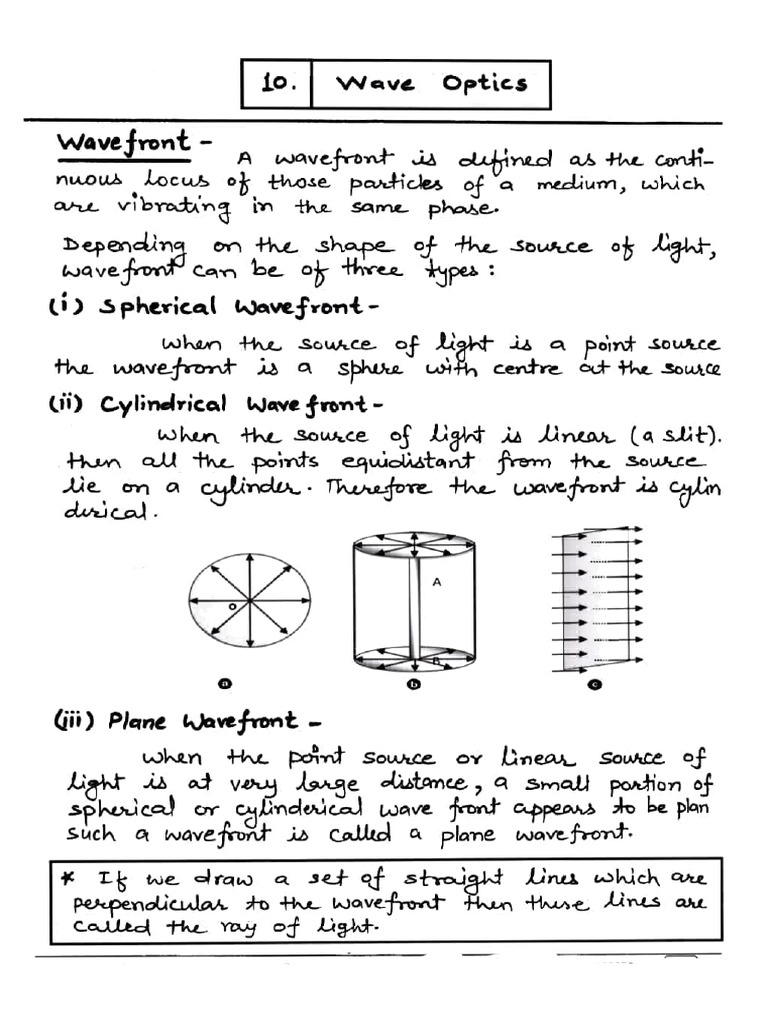 10. Wave Optics
Wavefront -
A wavefront is defined as the conti-
nuous locus of those particles of a medium, which
are vibrating in the same phase.
Depending on the shape of the source of light,
wavefront can be of three types :
(i) Spherical Wavefront -
When the source of light is a point source
the wavefront is a sphere with centre at the source
(ii) Cylindrical Wavefront -
When the source of light is linear (a slit).
then all the points equidistant from the source
lie on a cylinder. Therefore the wavefront is cylin
derical.
O
A
B
a
b
c
(iii) Plane Wavefront -
When the point source or linear source of
light is at very large distance, a small portion of
spherical or cylinderical wave front appears to be plan
such a wavefront is called a plane wavefront.
* If we draw a set of straight lines which are
perpendicular to the wavefront then these lines are
called the ray of light.